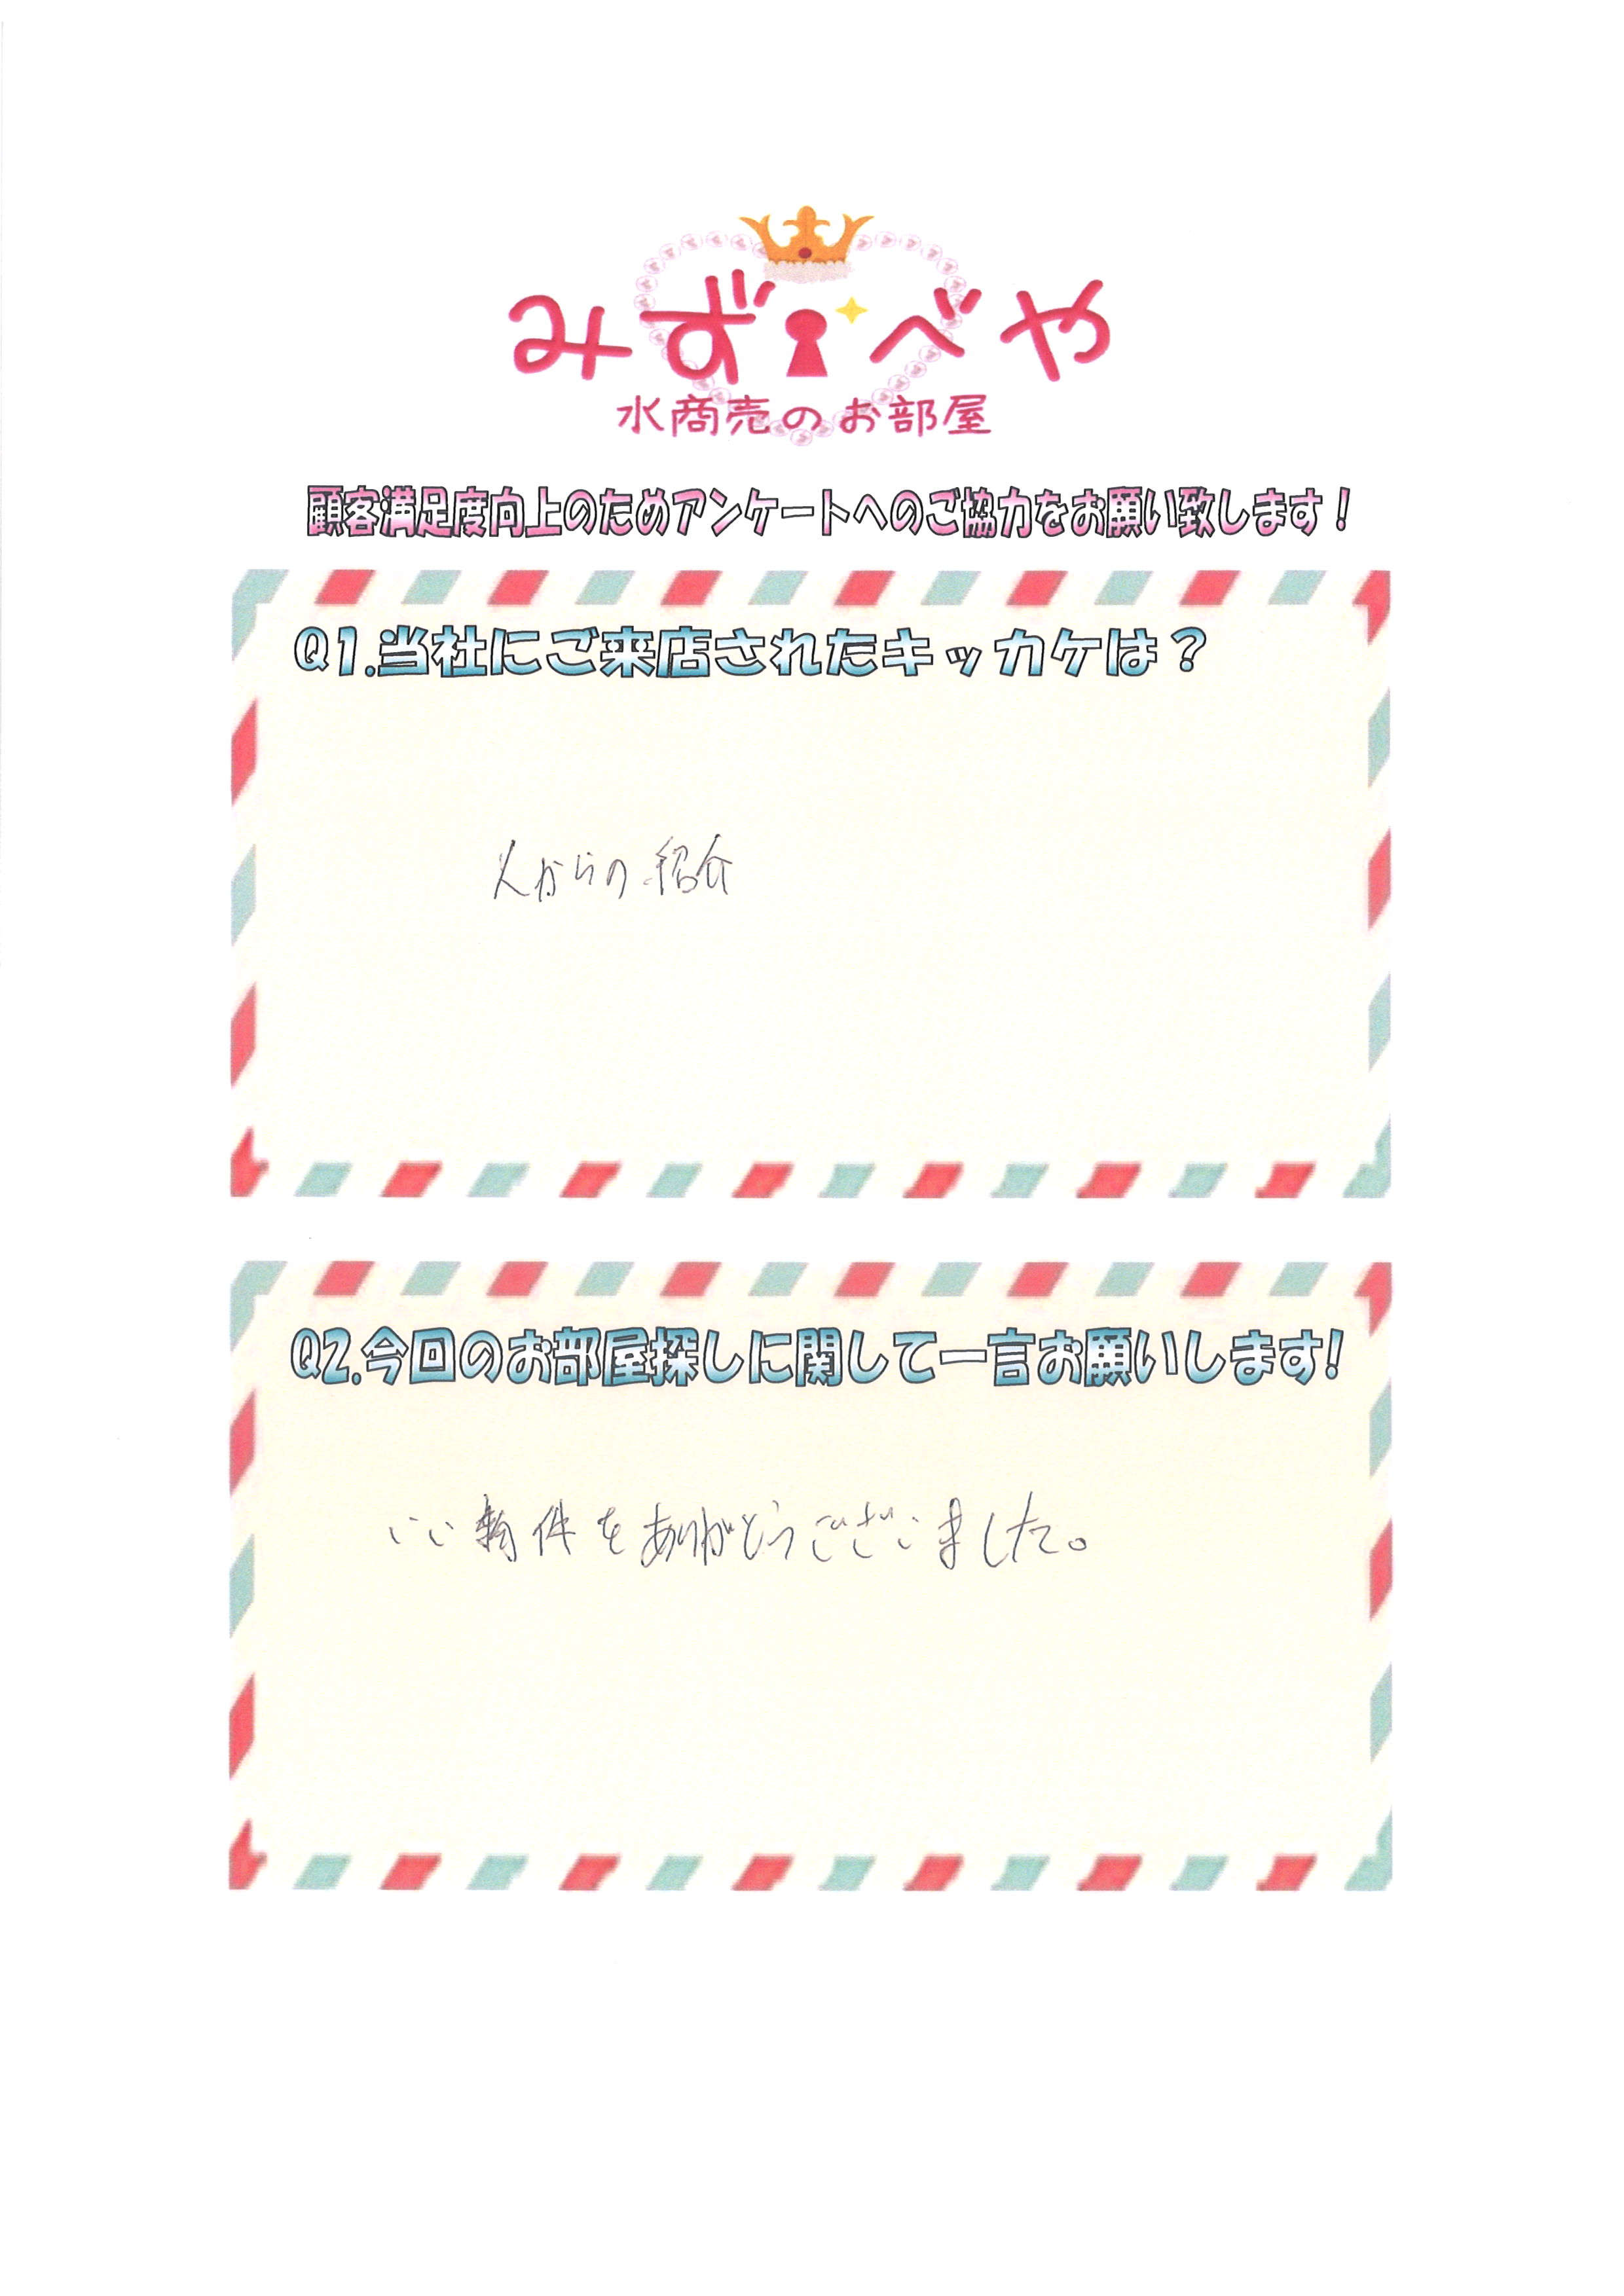 みずべや
水商売のお部屋
顧客満足度向上のためアンケートへのご協力をお願い致します！
Q1.当社にご来店されたキッカケは？
人からの紹介
Q2.今回のお部屋探しに関して一言お願いします!
いい物件をありがとうございました。